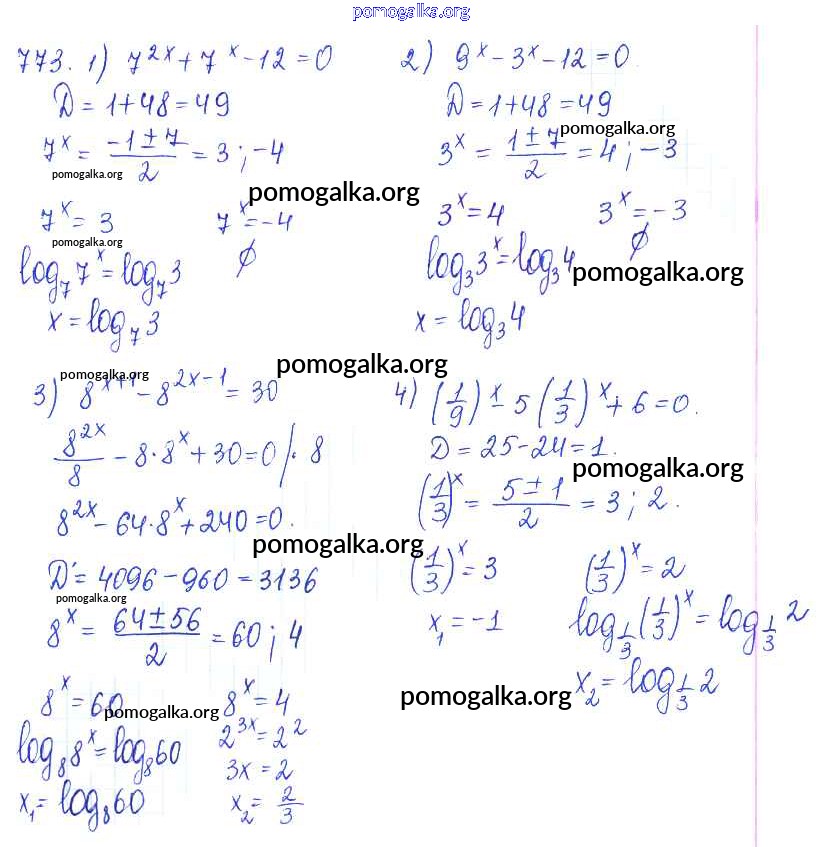 pomogalka.org
773. 1) 7^{2x} + 7^x - 12 = 0
D = 1 + 48 = 49
7^x = \frac{-1 ± 7}{2} = 3; -4
pomogalka.org
pomogalka.org
7^x = 3 7^x = -4
pomogalka.org
log_7 7^x = log_7 3 ∅
x = log_7 3
2) 9^x - 3^x - 12 = 0
D = 1 + 48 = 49
pomogalka.org
3^x = \frac{1 ± 7}{2} = 4; -3
3^x = 4 3^x = -3
log_3 3^x = log_3 4 ∅
pomogalka.org
x = log_3 4
pomogalka.org
pomogalka.org
3) 8^{x+1} - 8^{2x-1} = 30
\frac{8^{2x}}{8} - 8 · 8^x + 30 = 0 /· 8
8^{2x} - 64 · 8^x + 240 = 0.
pomogalka.org
D = 4096 - 960 = 3136
pomogalka.org
8^x = \frac{64 ± 56}{2} = 60; 4
8^x = 60 8^x = 4
pomogalka.org
log_8 8^x = log_8 60 2^{3x} = 2^2
3x = 2
x_1 = log_8 60 x_2 = \frac{2}{3}
4) (\frac{1}{9})^x - 5 (\frac{1}{3})^x + 6 = 0.
D = 25 - 24 = 1.
pomogalka.org
(\frac{1}{3})^x = \frac{5 ± 1}{2} = 3; 2.
(\frac{1}{3})^x = 3 (\frac{1}{3})^x = 2
x_1 = -1 log_{\frac{1}{3}} (\frac{1}{3})^x = log_{\frac{1}{3}} 2
pomogalka.org
x_2 = log_{\frac{1}{3}} 2